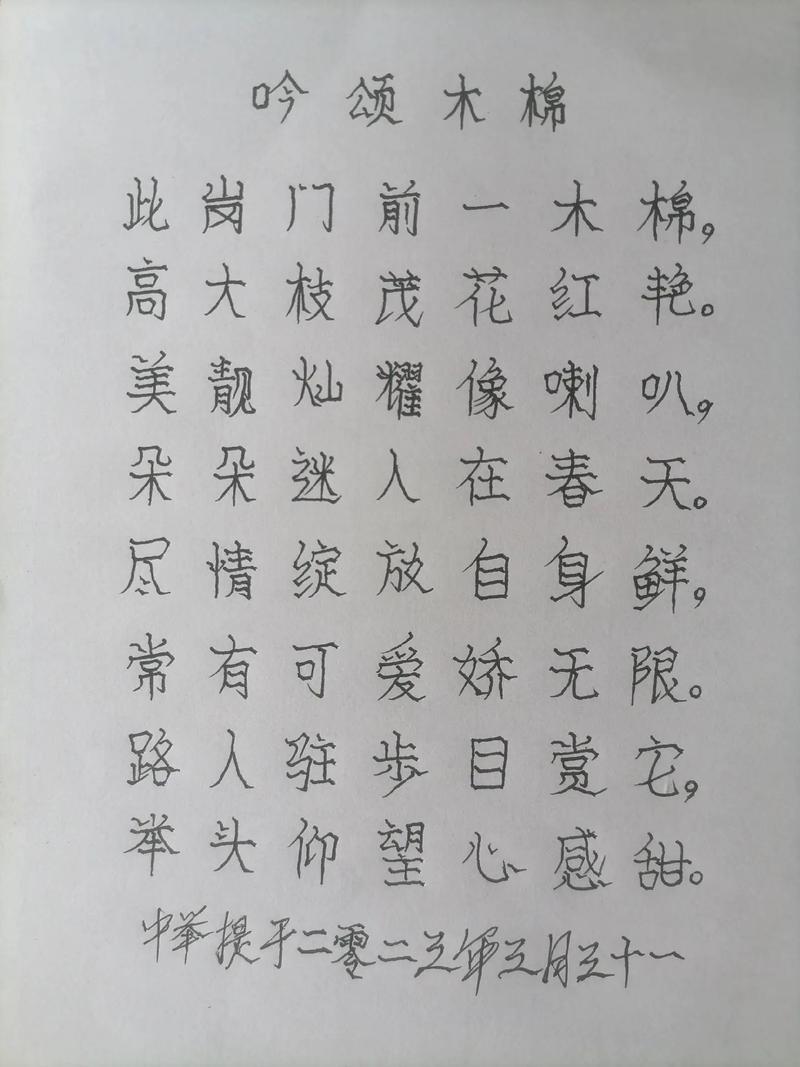 吟颂木棉
此岗门前一木棉，
高大枝茂花红艳。
美靓灿耀像喇叭，
朵朵迷人在春天。
尽情绽放自身鲜，
常有可爱娇无限。
路人驻步目赏它，
举头仰望心感甜。
中举提于二零二三年三月三十一